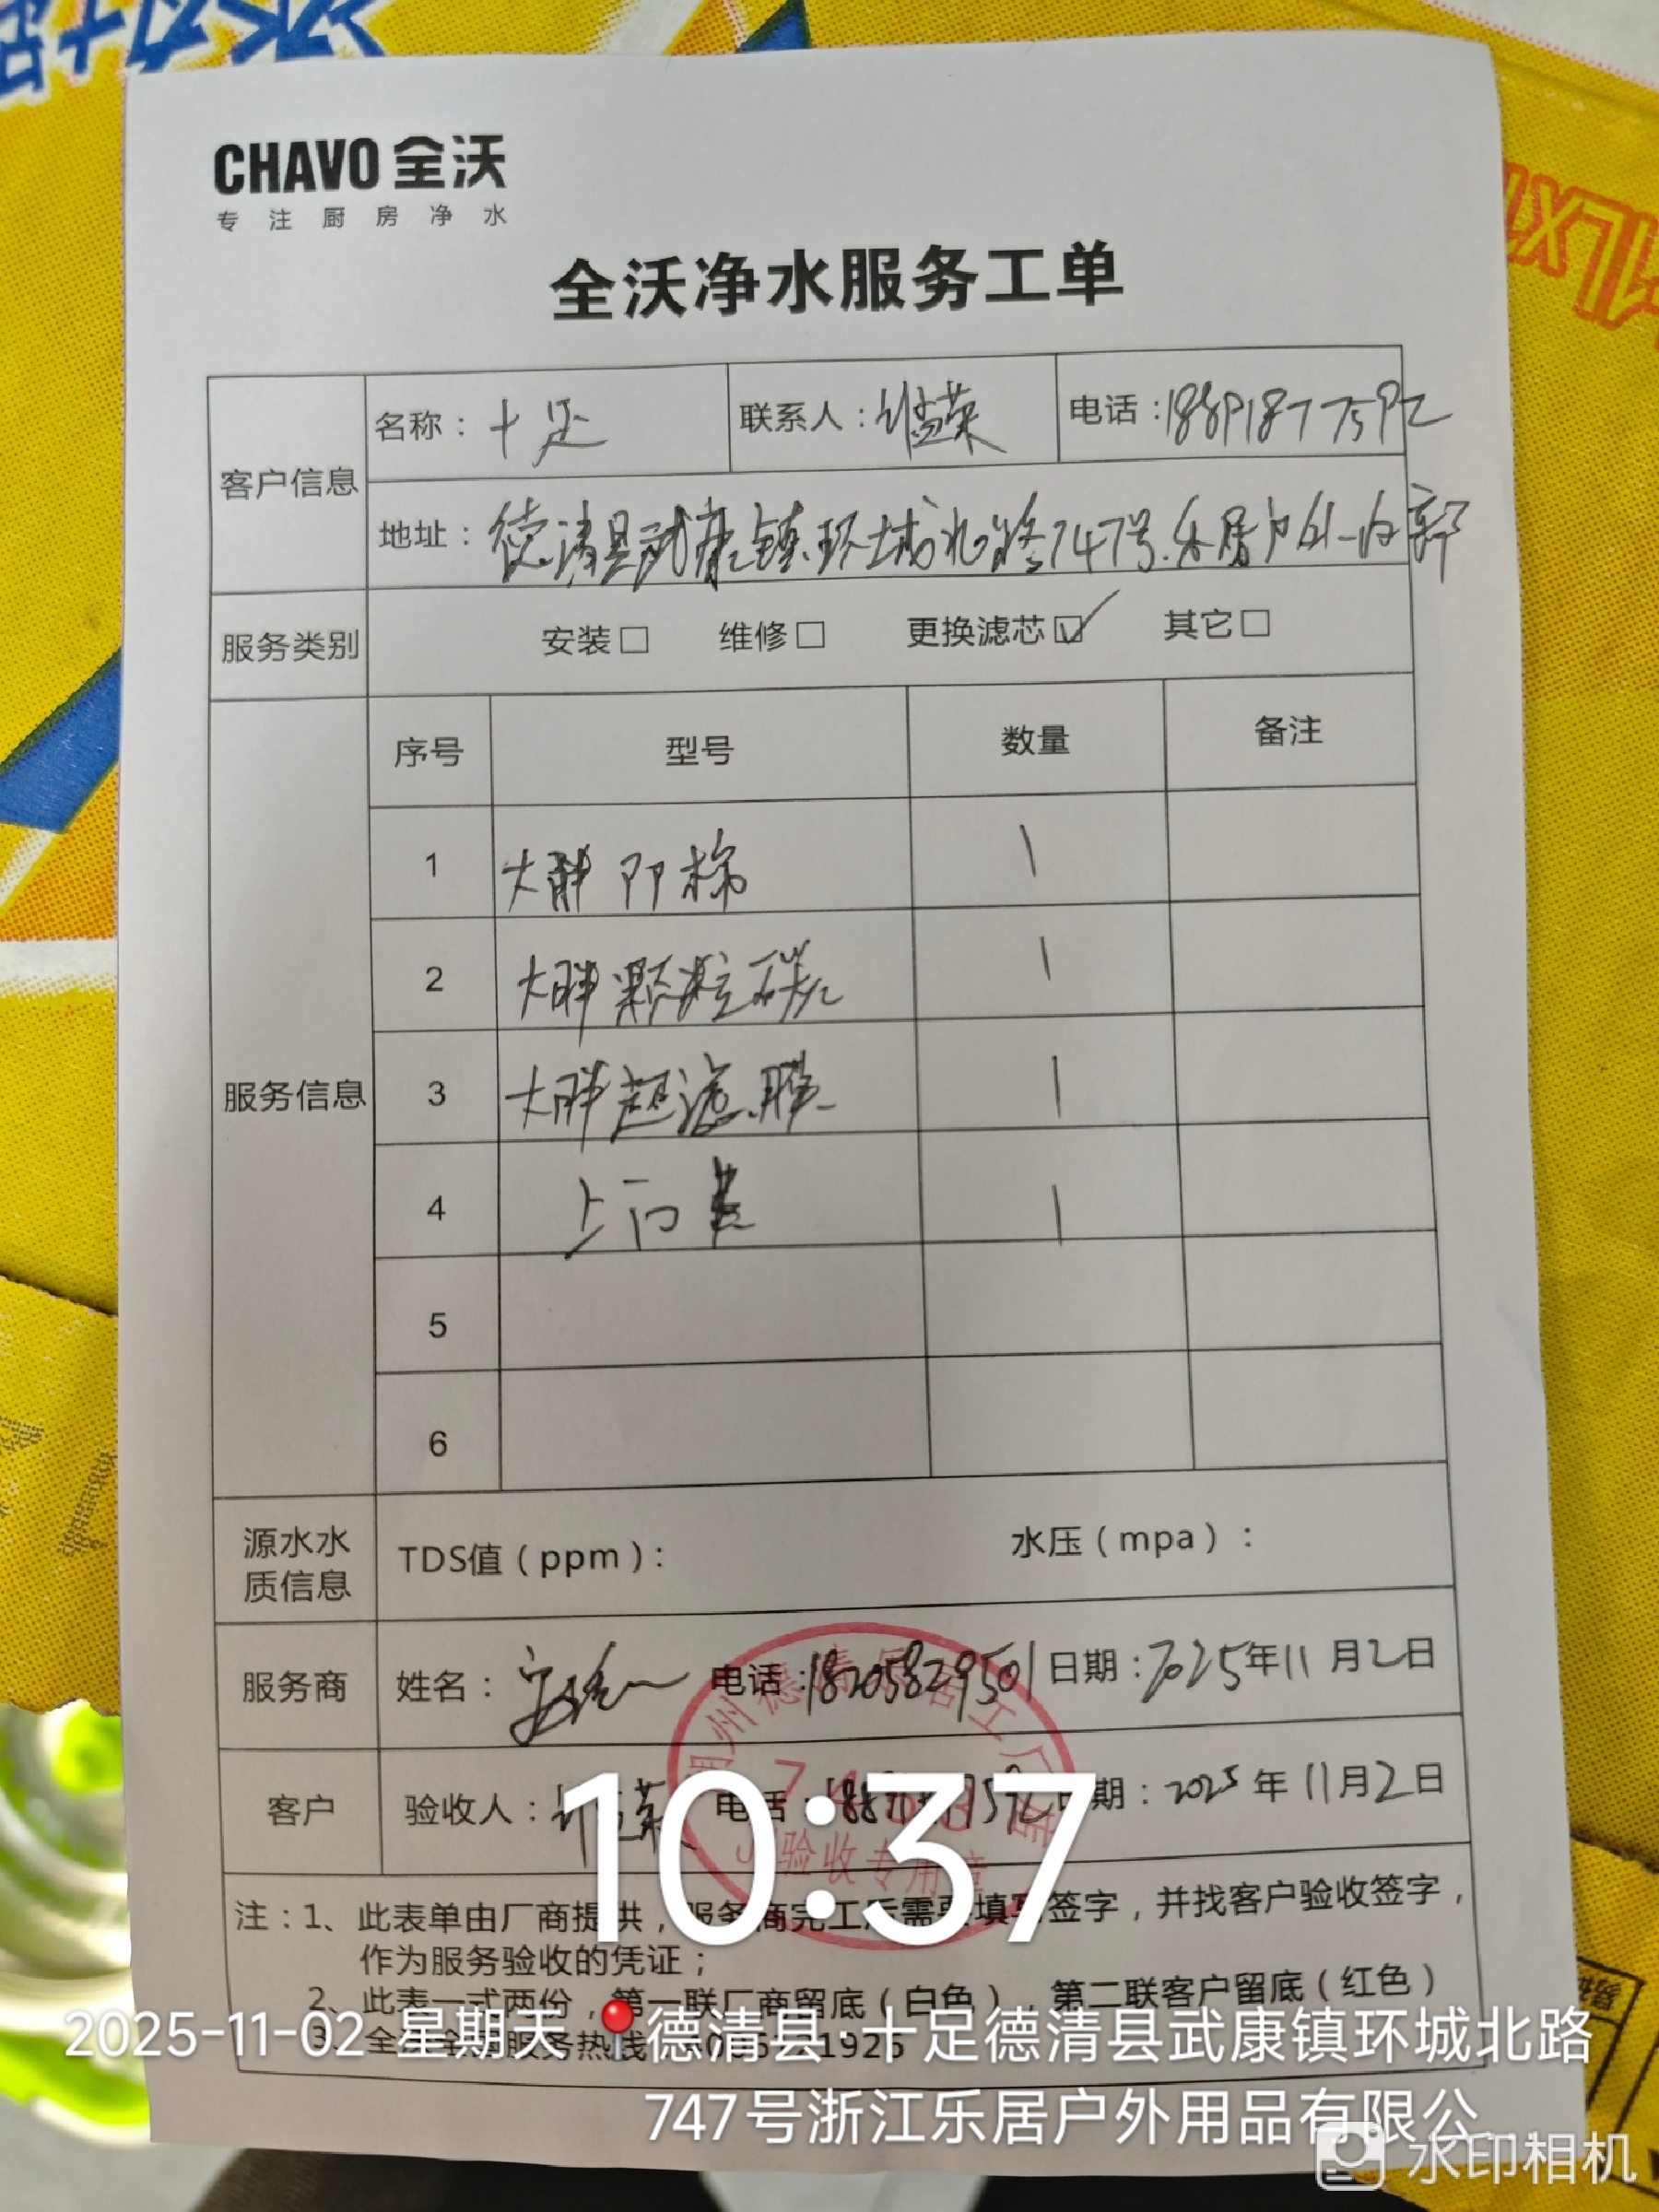 CHAVO 全沃
专注厨房净水
全沃净水服务工单
客户信息
名称：十足 联系人： 电话：18891877592
地址：德清县武康镇环城北路747号.乐居户外
服务类别 安装□ 维修□ 更换滤芯☑ 其它□
服务信息
序号 型号 数量 备注
1 大胖PP棉 1
2 大胖颗粒碳 1
3 大胖超滤膜 1
4 上门费 1
5
6
源水水质信息 TDS值（ppm）： 水压（mpa）：
服务商 姓名： 电话：18205829501 日期：2025年11月2日
客户 验收人： 电话： 日期：2025年11月2日
验收专用章
注：1、此表单由厂商提供，服务商完工后需要填写签字，并找客户验收签字，
作为服务验收的凭证；
2、此表一式两份，第一联厂商留底（白色），第二联客户留底（红色）
3、全沃全国服务热线
10:37
2025-11-02 星期天 德清县·十足德清县武康镇环城北路
747号浙江乐居户外用品有限公...
水印相机